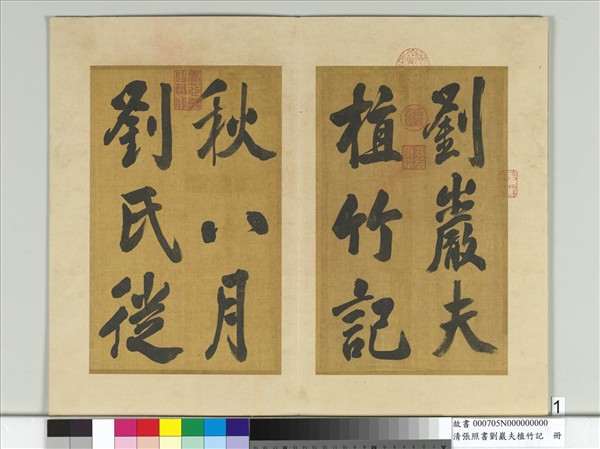 劉巖夫
植竹記
秋八月
劉氏徙
1
故書 000705N000000000
清張照書劉巖夫植竹記 冊